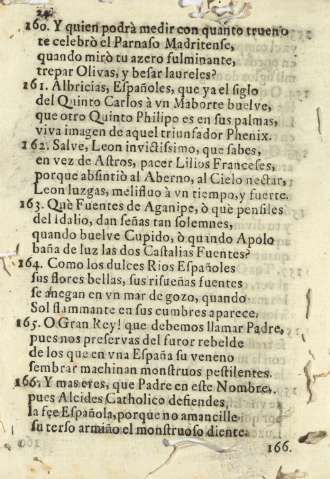 160. Y quien podrà medir con quanto trueno
te celebrò el Parnaso Madritense,
quando mirò tu azero fulminante,
trepar Olivas, y besar laureles?
161. Albricias, Españoles, que ya el siglo
del Quinto Carlos à vn Maborte buelve,
que otro Quinto Philipo es en sus palmas,
viva imagen de aquel triunfador Phenix.
162. Salve, Leon invictissimo, que sabes,
en vez de Astros, pacer Lilios Franceses,
porque absintio al Aberno, al Cielo nectar,
Leon luzgas, melifluo à vn tiempo, y fuerte.
163. Què Fuentes de Aganipe, ò què pensiles
del Idalio, dan señas tan solemnes,
quando buelve Cupido, ò quando Apolo
baña de luz las dos Castalias Fuentes?
164. Como los dulces Rios Españoles
sus flores bellas, sus risueñas fuentes
se anegan en vn mar de gozo, quando
Sol flammante en sus cumbres aparece.
165. O Gran Rey! que debemos llamar Padre,
pues nos preservas del furor rebelde
de los que en vna España su veneno
sembrar machinan monstruos pestilentes.
166. Y mas eres, que Padre en este Nombre,
pues Alcides Catholico defiendes,
la fee Española, porque no amancille
su terso armiño el monstruoso diente.
166.